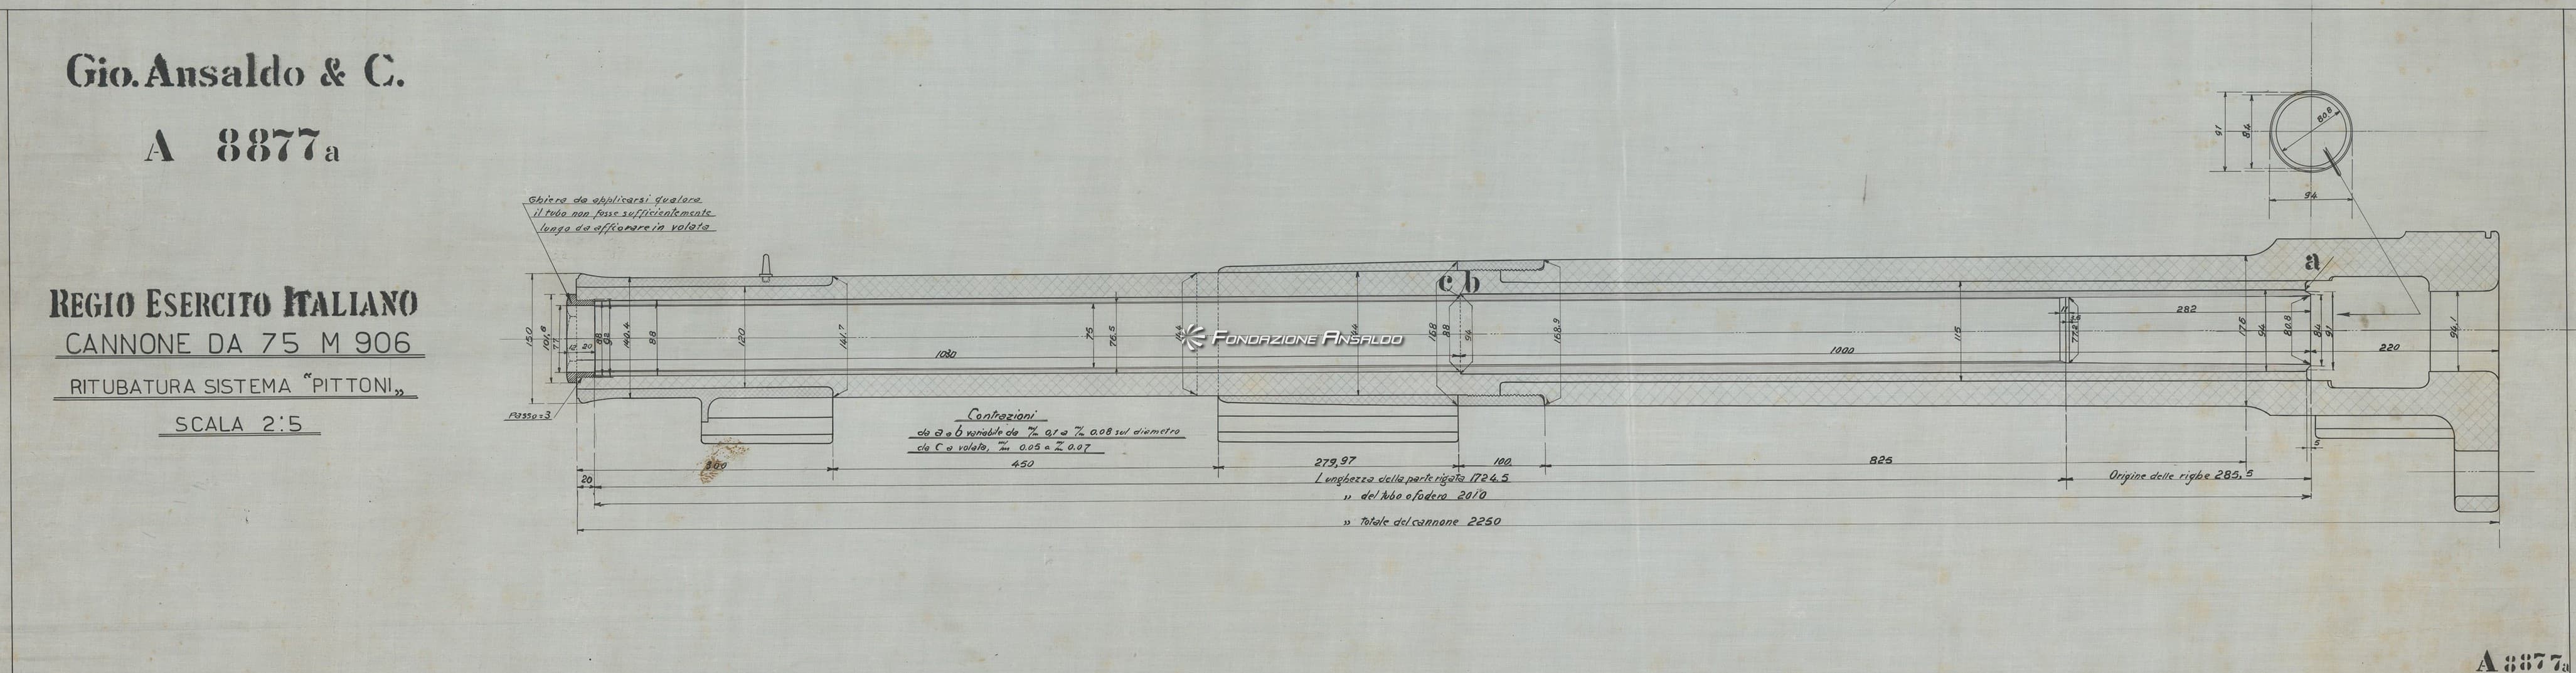 Gio. Ansaldo & C.
A 8877a
REGIO ESERCITO ITALIANO
CANNONE DA 75 M 906
RITUBATURA SISTEMA "PITTONI„
SCALA 2:5
Ghiera da applicarsi qualora
il tubo non fosse sufficientemente
lungo da affiorare in volata
91
84
80.8
94
a
c b
150
101,6
77
12
20
88
92
140.4
88
120
141.7
1030
75
76.5
FONDAZIONE ANSALDO
168
88
94
168.9
1000
115
282
176
94
80.8
84
91
220
94,1
Passo=3
Contrazioni
da a a b variabile da m/m 0,1 a m/m 0.08 sul diametro
da c a volata, m/m 0.05 a m/m 0.07
5
300
450
279,97
100
825
20
Lunghezza della parte rigata 1724.5
Origine delle righe 285,5
„ del tubo o fodero 2010
„ totale del cannone 2250
A 8877a